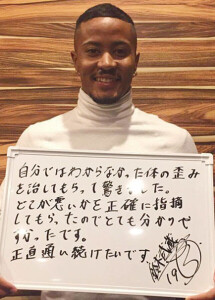 自分ではわからなかった体の歪み
を治してもらって驚きました。
どこが悪いかを正確に指摘
してもらったのでとても分かりや
すかったです。
正直通い続けたいです。
鈴木武蔵
19